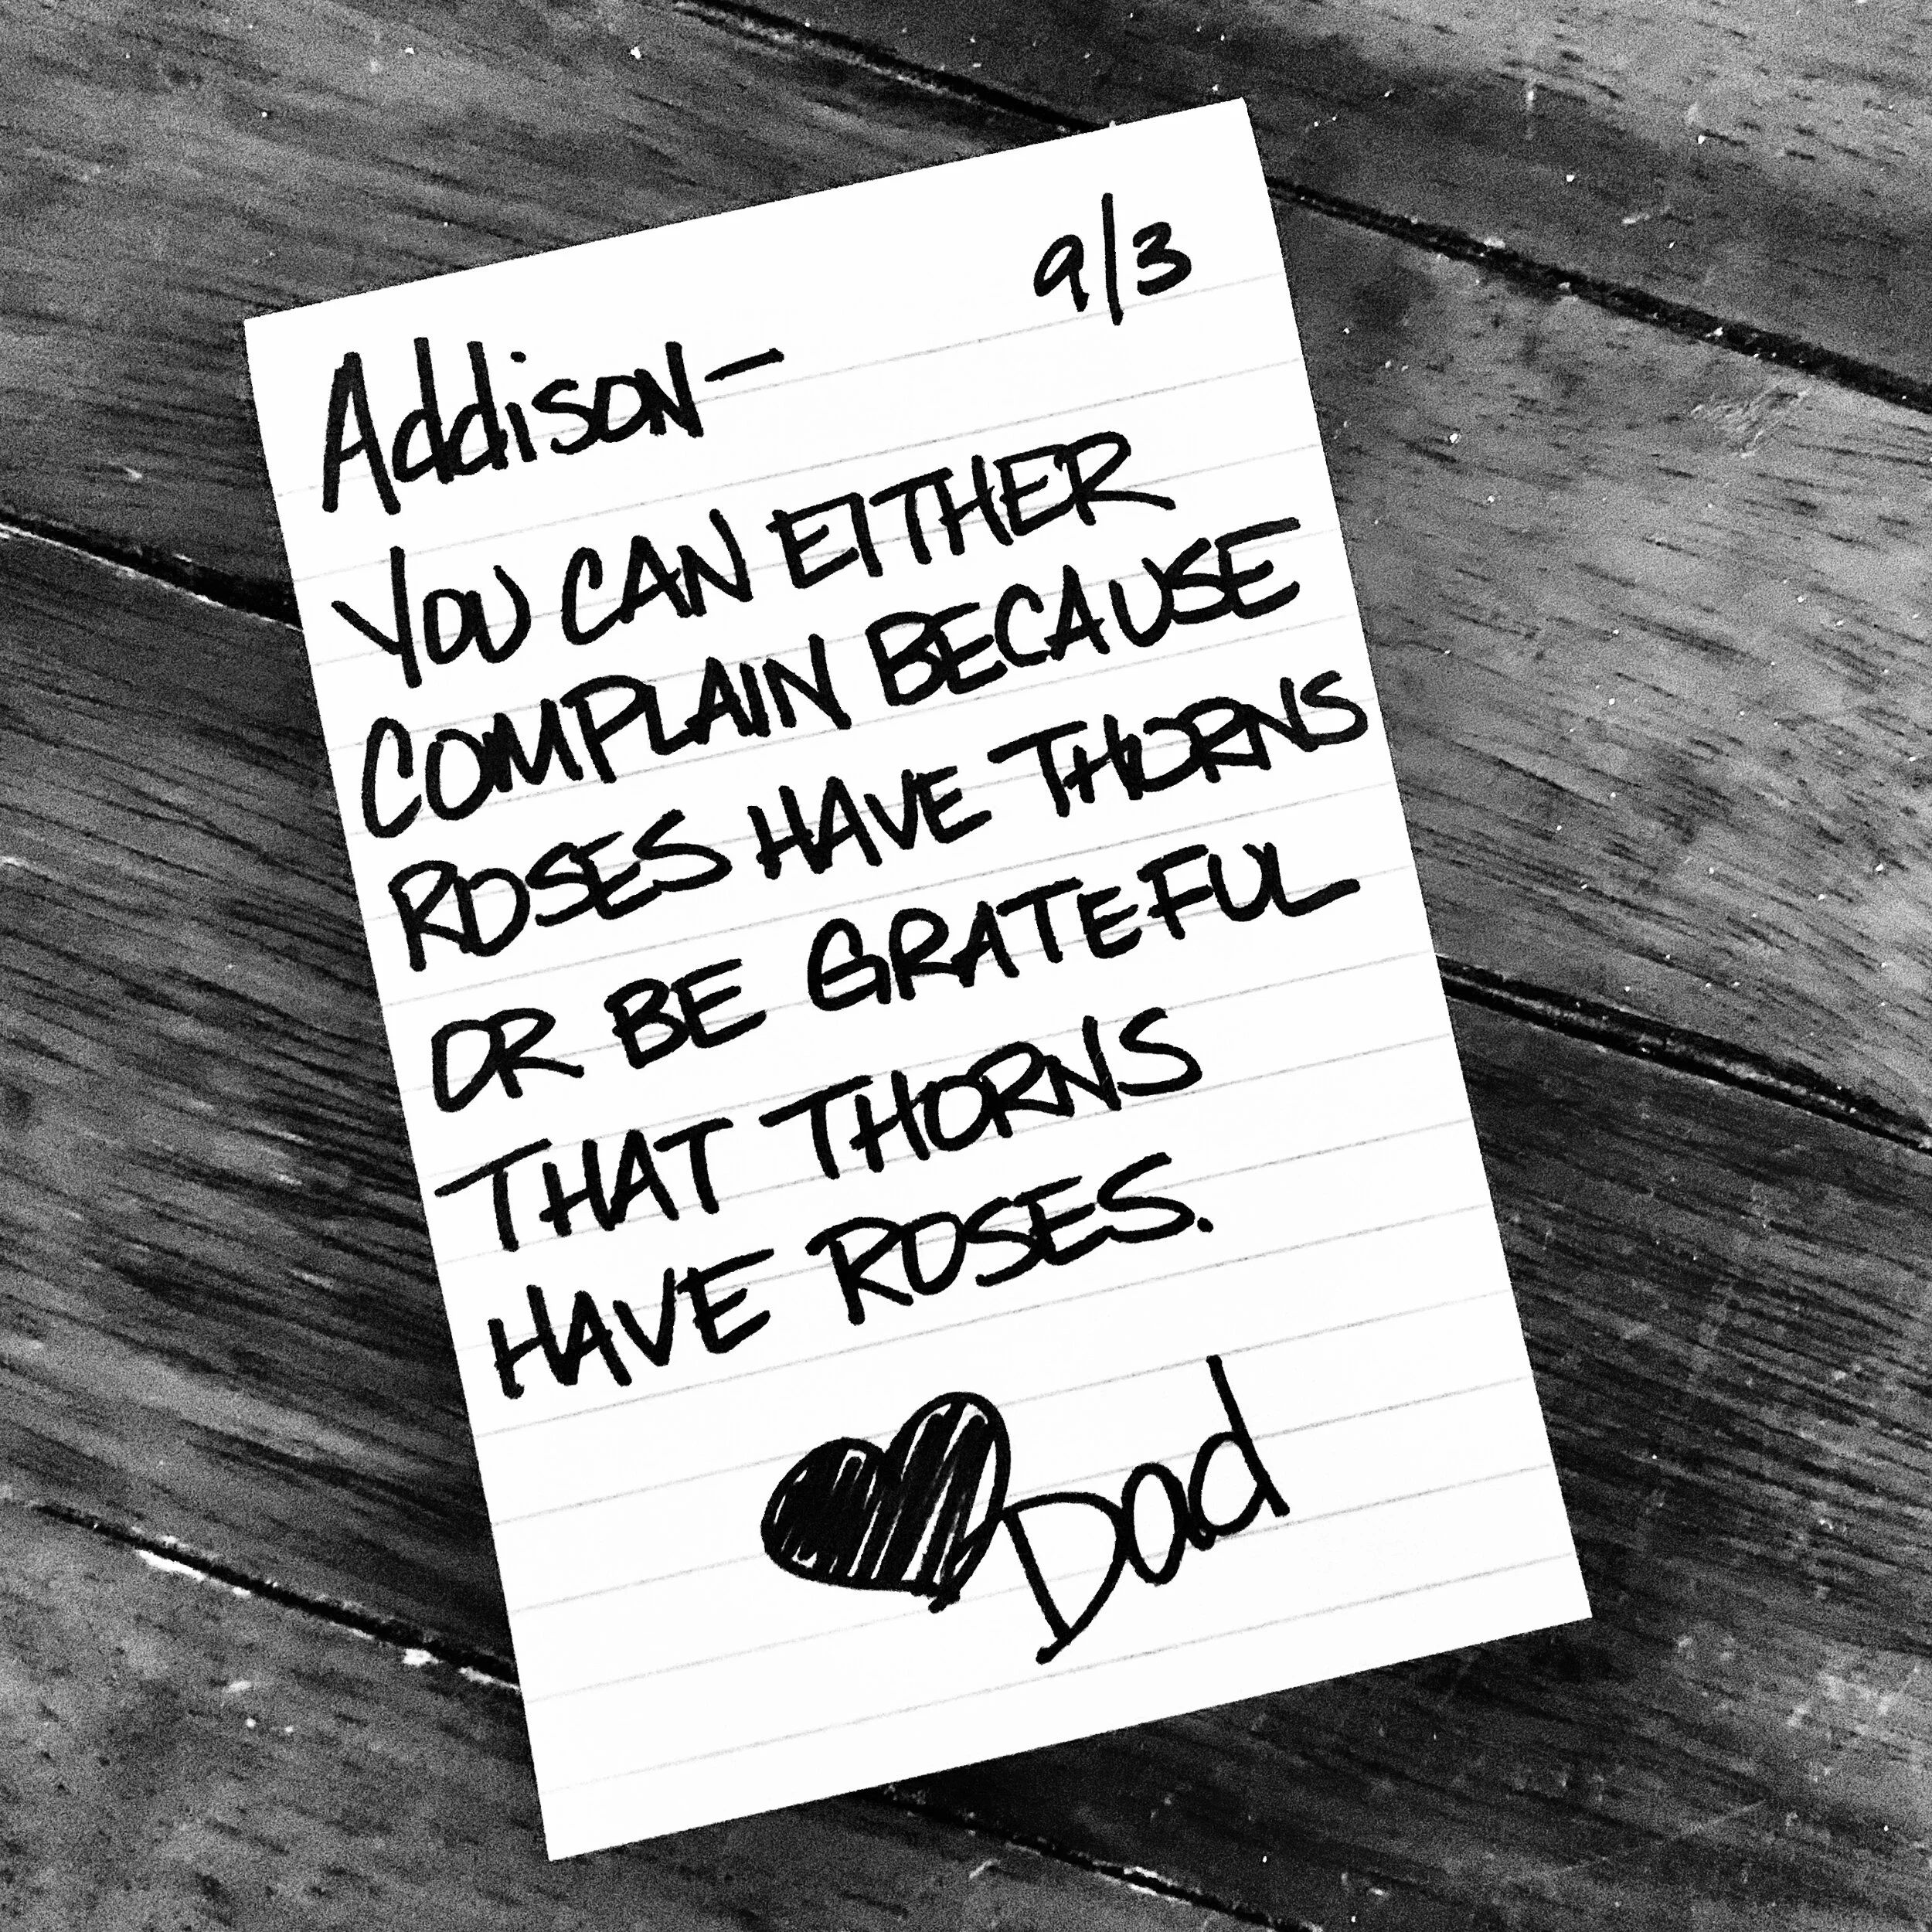 9/3
Addison-
YOU CAN EITHER
COMPLAIN BECAUSE
ROSES HAVE THORNS
OR BE GRATEFUL
THAT THORNS
HAVE ROSES.
Dad